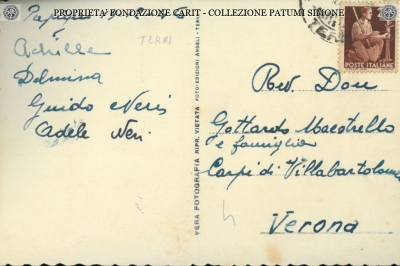 PROPRIETA' FONDAZIONE CARIT - COLLEZIONE PATUMI SIMONE
TERNI
Achille
Delmina
Guido Neri
Adele Neri
VERA FOTOGRAFIA RIPR. VIETATA FOTO-EDIZIONI ANGELI - TERNI
POSTE ITALIANE
Rev. Don
Gottardo Macotrello
e famiglia
Carpi di Villabartolomea
Verona